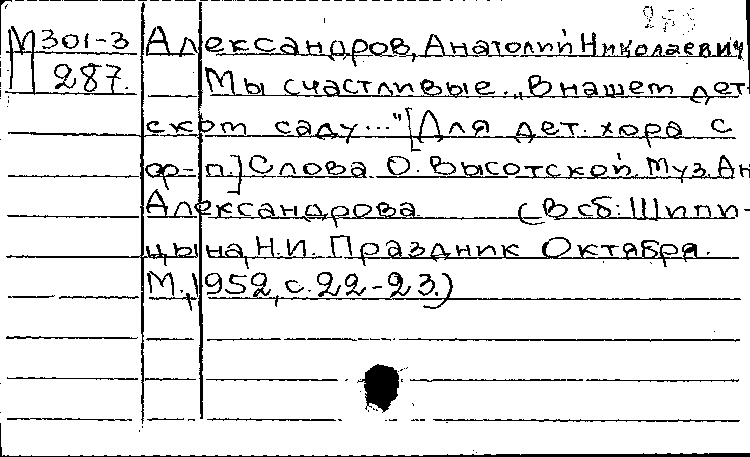 М301-3 Александров, Анатолий Николаевич
287. Мы счастливые. „В нашем дет-
ском саду..." [Для дет. хора с
ф-п.] Слова О. Высотской. Муз. Ан.
Александрова (В сб: Шипи-
цына, Н.И. Праздник Октября.
М., 1952, с. 22-23.)